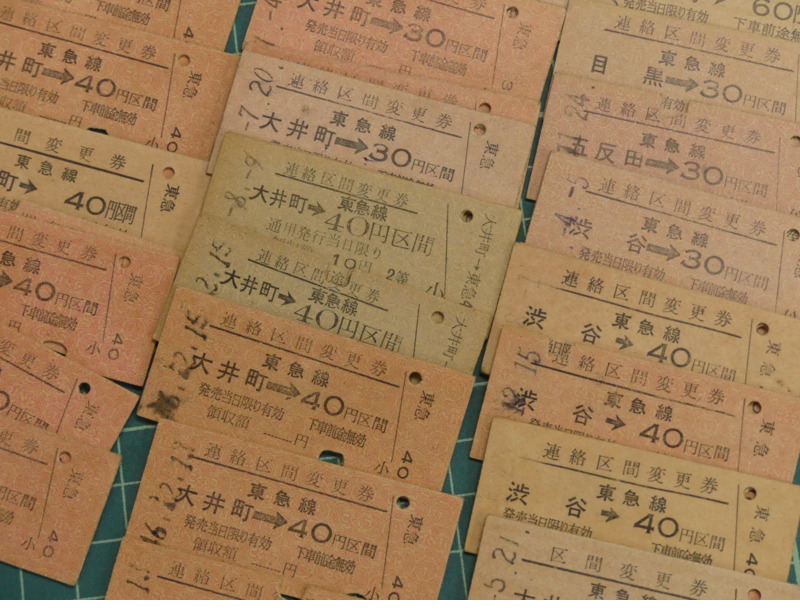 発売当日限り有効
4
連絡区間変更券
東急線
井町➡40円区間
発売当日限り有効 下車前途無効
領収額
東急
40
間変更券
東急線
町➡ 40円区間
東急
間変更券
急線
➡40円区間
下車前途無効
円
小
40
東急
変更券
円区間
東急
区間変更券
円区間
小
40
東急
東急線
大井町➡30円区間
発売当日限り有効 下車前途無効
領収額
-4
3
連絡区間変更券
東急線
大井町➡30円区間
20
-7.
東急
連絡区間変更券
東急線
大井町➡40円区間
通用発行当日限り
10円
2等 小
-8.-9
大井町→東急4
連絡区間変更券
東急線
大井町➡40円区間
大井町
連絡区間変更券
東急線
大井町➡40円区間
発売当日限り有効 下車前途無効
領収額 ……円
小
40
12.15
東急
連絡区間変更券
東急線
大井町➡40円区間
発売当日限り有効 下車前途無効
領収額 ……円
小
40
東急
連絡区間変更券
60円
発売当日限り有効 下車前途無効
連絡区間変更券
東急線
目 黒➡30円区間
有効
連絡区間変更券
東急線
五反田➡30円区間
24
東急
連絡区間変更券
東急線
渋 谷➡30円区間
発売当日限り有効 下車前途無効
-4.-5
東急
連絡区間変更券
東急線
渋 谷➡40円区間
東急
連絡区間変更券
東急線
渋 谷➡40円区間
15
東急
連絡区間変更券
東急線
渋 谷➡40円区間
発売当日限り有効 下車前途無効
40
東急
区間変更券
東急線
-5.21
東急